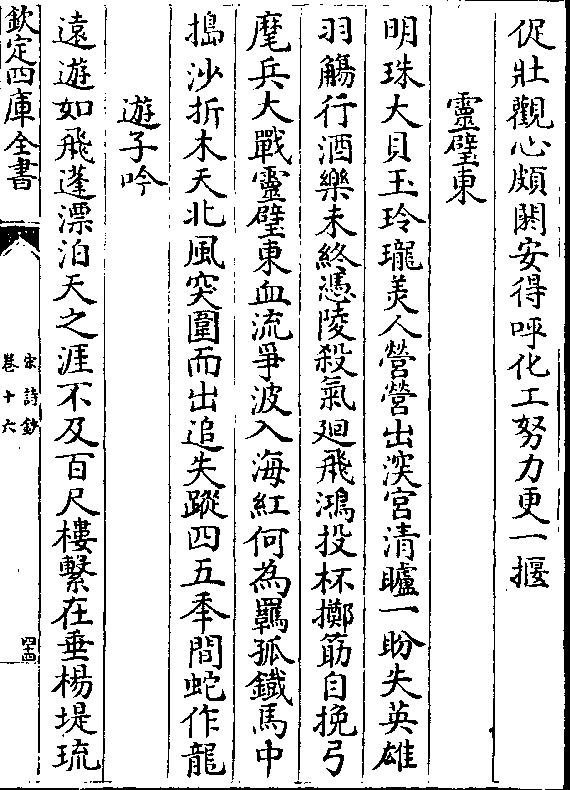 促壯觀心頗闕安得呼化工努力更一握
靈璧東
明珠大貝玉玲瓏羙人營營出深宮清矑一盼失英雄
羽觴行酒樂未終憑陵殺氣廻飛鴻投杯擲筯自挽弓
麾兵大戰靈璧東血流爭波入海紅何為羈孤鐵馬中
搗沙折木天北風突圍而出追失蹤四五季間蛇作龍
遊子吟
遠遊如飛蓬漂泊天之涯不及百尺樓繫在垂楊堤琉
欽定四庫全書
宋詩鈔
卷十六